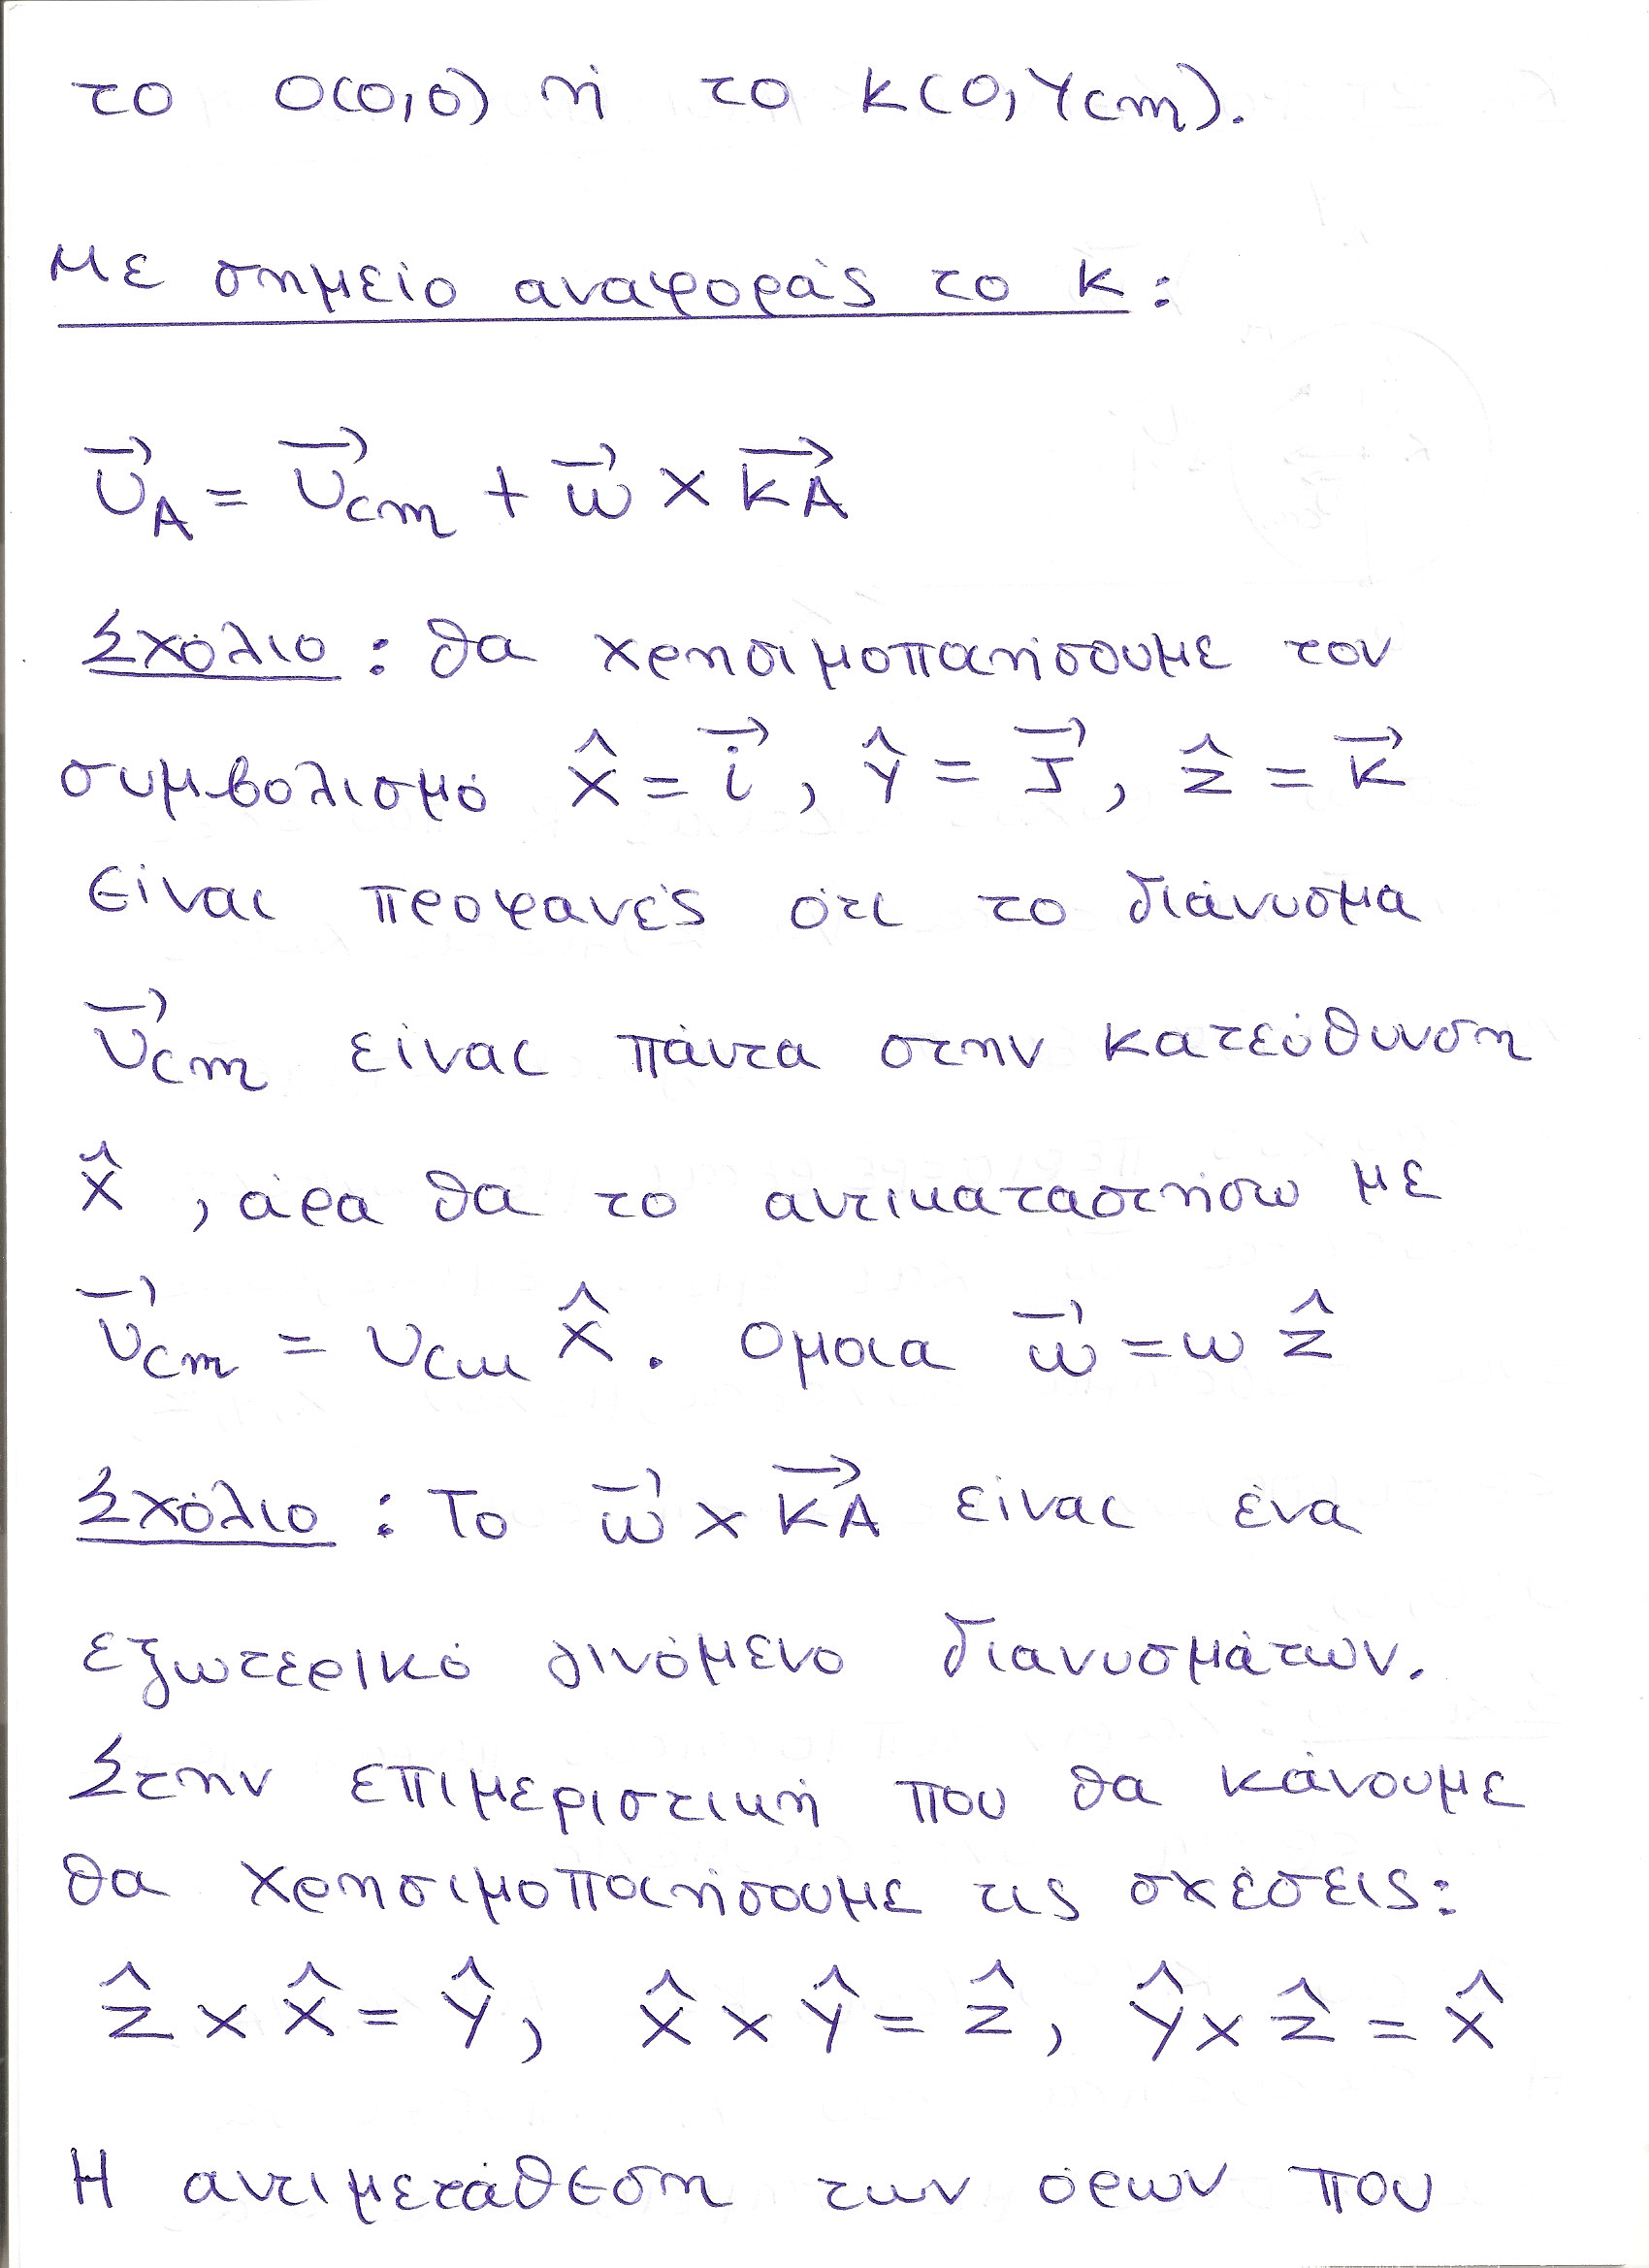 το Ο(0,0) ή το Κ(0,Ycm).
Με σημείο αναφοράς το Κ:
$\vec{υ}_A = \vec{υ}_{cm} + \vec{ω} \times \vec{KA}$
Σχόλιο: θα χρησιμοποιήσουμε τον
συμβολισμό $\hat{x} = \vec{i}$, $\hat{y} = \vec{j}$, $\hat{z} = \vec{k}$
Είναι προφανές ότι το διάνυσμα
$\vec{υ}_{cm}$ είναι πάντα στην κατεύθυνση
$\hat{x}$, άρα θα το αντικαταστήσω με
$\vec{υ}_{cm} = υ_{cm} \hat{x}$. Ομοια $\vec{ω} = ω \hat{z}$
Σχόλιο: Το $\vec{ω} \times \vec{KA}$ είναι ένα
εξωτερικό γινόμενο διανυσμάτων.
Στην επιμεριστική που θα κάνουμε
θα χρησιμοποιήσουμε τις σχέσεις:
$\hat{z} \times \hat{x} = \hat{y}$, $\hat{x} \times \hat{y} = \hat{z}$, $\hat{y} \times \hat{z} = \hat{x}$
Η αντιμετάθεση των όρων που